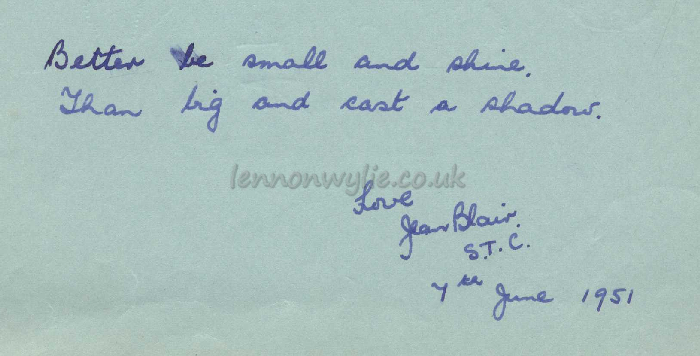 Better be small and shine.
Than big and cast a shadow.
lennonwylie.co.uk
Love
Jean Blair.
S.T.C.
7th June 1951